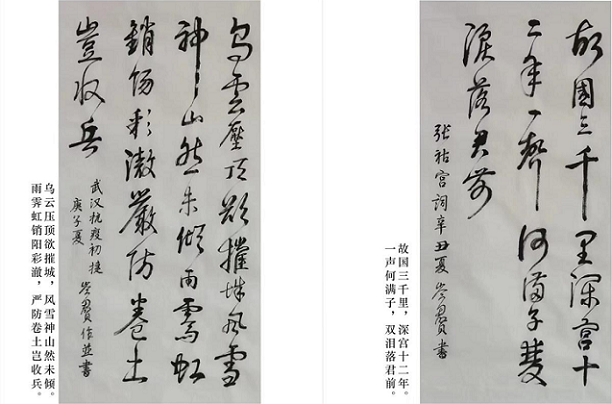 乌雲壓頂欲摧城风雪
神山然未倾雨霁虹
銷阳彩澈嚴防卷土
豈收兵
武汉抗疫初捷
庚子夏 作並書
乌云压顶欲摧城，风雪神山然未倾。
雨霁虹销阳彩澈，严防卷土岂收兵。
故國三千里深宫十
二年一聲何满子雙
淚落君前
张祜宫词辛丑夏 書
故国三千里，深宫十二年。
一声何满子，双泪落君前。